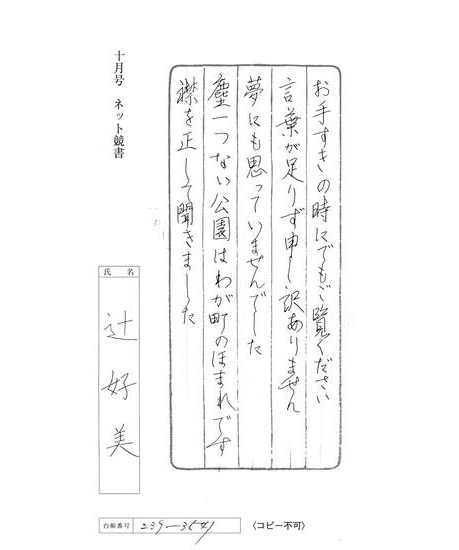 お手すきの時にでもご覧ください
言葉が足りず申し訳ありません
夢にも思っていませんでした
塵一つない公園はわが町のほまれです
襟を正して聞きました
十月号 ネット競書
氏名
辻好美
台帳番号 239-3541
〈コピー不可〉